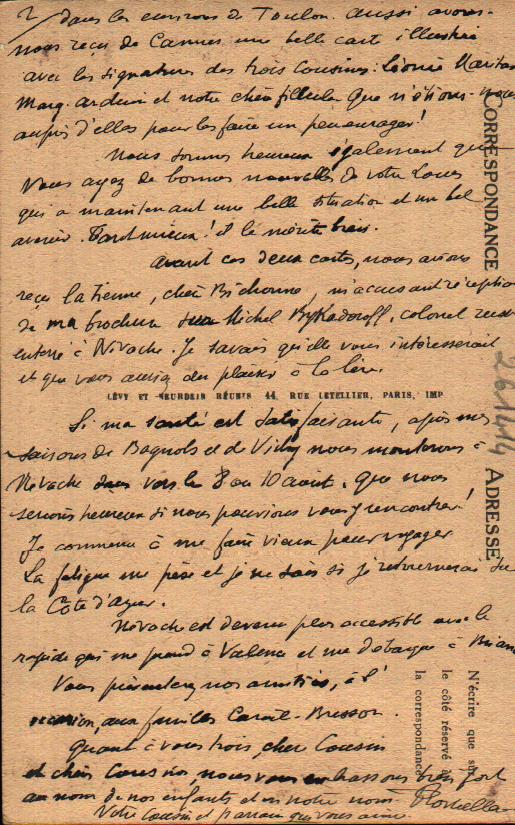 2/ dans les environs de Toulon. Aussi avons-
nous reçu de Cannes une belle carte illustrée
avec les signatures des trois cousines: Léonie
Marg. Arduin et notre chère filleule. Que n'étions-nous
auprès d'elles pour les faire un peu enrager!
Nous sommes heureux également que
vous ayez de bonnes nouvelles de votre Louis
qui a maintenant une belle situation et un bel
avenir. Tant mieux! Il le mérite bien.
Avant ces deux cartes, nous avions
reçu la tienne, chère Bichonne, m'accusant réception
de ma brochure sur Michel Bykadoroff, colonel russe
enterré à Névache. Je savais qu'elle vous intéresserait
et que vous auriez du plaisir à la lire.
LÉVY ET NEURDEIN RÉUNIS 44, RUE LETELLIER, PARIS, IMP
Si ma santé est satisfaisante, après mes
saisons de Bagnols et de Vichy nous monterons à
Névache dans vers le 8 ou 10 août. Que nous
serions heureux si nous pouvions vous y rencontrer!
Je commence à me faire vieux pour voyager
La fatigue me pèse et je ne sais si je retournerai sur
la Côte d'Azur.
Névache est devenu plus accessible avec le
rapide qui me prend à Valence et me débarque à
Vous présenterez nos amitiés, à l'
occasion, aux familles Carail-Bresson.
Quant à vous trois, cher Cousin
et chères Cousines, nous vous embrassons bien fort
au nom de nos enfants et en notre nom.
Votre cousin et parrain qui vous aime.
CORRESPONDANCE
261414
ADRESSE
N'écrire que sur
le côté réservé à
la correspondance